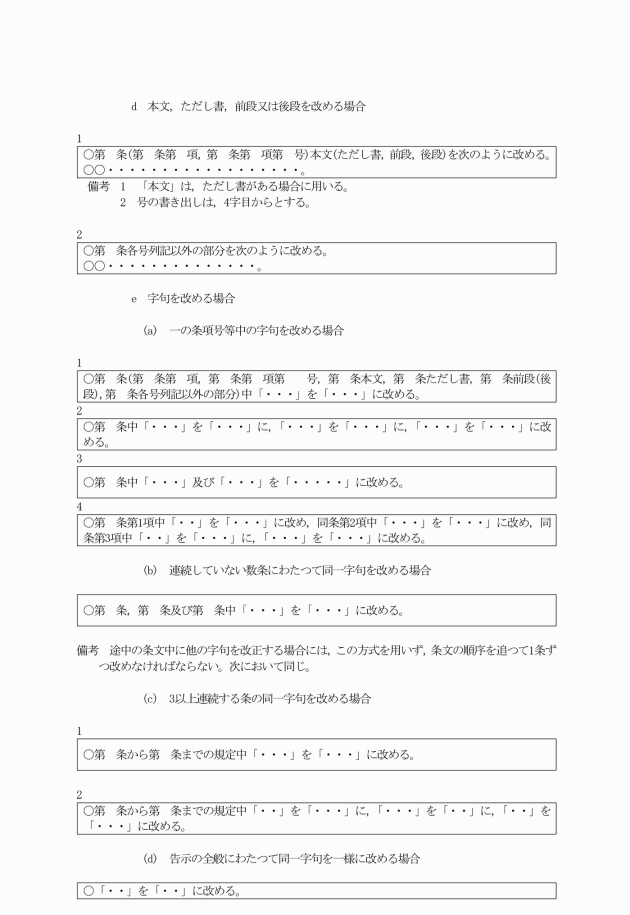 d　本文，ただし書，前段又は後段を改める場合
1
○第　条(第　条第　項，第　条第　項第　号)本文(ただし書，前段，後段)を次のように改める。
○○・・・・・・・・・・・・・・・・・・。
備考　1　「本文」は，ただし書がある場合に用いる。
2　号の書き出しは，4字目からとする。
2
○第　条各号列記以外の部分を次のように改める。
○○・・・・・・・・・・・・・・。
e　字句を改める場合
(a)　一の条項号等中の字句を改める場合
1
○第　条(第　条第　項，第　条第　項第　　号，第　条本文，第　条ただし書，第　条前段(後
段)，第　条各号列記以外の部分)中「・・・」を「・・・」に改める。
2
○第　条中「・・・」を「・・・」に，「・・・」を「・・・」に，「・・・」を「・・・」に改
める。
3
○第　条中「・・・」及び「・・・」を「・・・・・」に改める。
4
○第　条第1項中「・・」を「・・・」に改め，同条第2項中「・・・」を「・・・」に改め，同
条第3項中「・・」を「・・・」に，「・・・」を「・・・」に改める。
(b)　連続していない数条にわたつて同一字句を改める場合
○第　条，第　条及び第　条中「・・・」を「・・・」に改める。
備考　途中の条文中に他の字句を改正する場合には，この方式を用いず，条文の順序を追つて1条ず
つ改めなければならない。次において同じ。
(c)　3以上連続する条の同一字句を改める場合
1
○第　条から第　条までの規定中「・・・」を「・・・」に改める。
2
○第　条から第　条までの規定中「・・」を「・・・」に，「・・・」を「・・」に，「・・」を
「・・・」に改める。
(d)　告示の全般にわたつて同一字句を一様に改める場合
○「・・」を「・・」に改める。